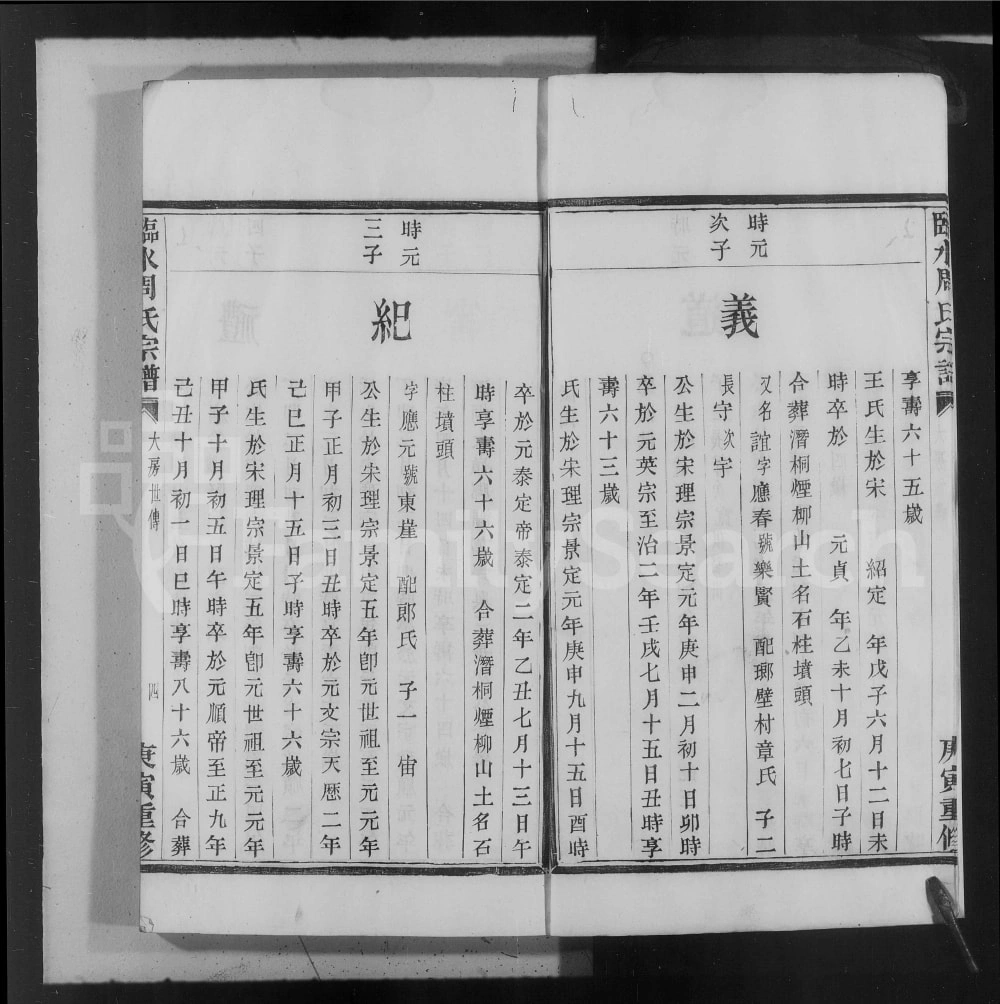 臨水周氏宗譜
庚寅重修
時元
次子
義
享壽六十五歲
王氏生於宋 紹定 年戊子六月十二日未
時卒於 元貞 年乙未十月初七日子時
合葬潛桐煙柳山土名石柱墳頭
又名誼字應春號樂賢 配瑯壁村章氏 子二
長守次宇
公生於宋理宗景定元年庚申二月初十日卯時
卒於元英宗至治二年壬戌七月十五日丑時享
壽六十三歲
氏生於宋理宗景定元年庚申九月十五日酉時
卒於元泰定帝泰定二年乙丑七月十三日午
時享壽六十六歲 合葬潛桐煙柳山土名石
柱墳頭
時元
三子
紀
字應元號東崖 配郎氏 子一宙
公生於宋理宗景定五年卽元世祖至元元年
甲子正月初三日丑時卒於元文宗天歷二年
己巳正月十五日子時享壽六十六歲
氏生於宋理宗景定五年卽元世祖至元元年
甲子十月初五日午時卒於元順帝至正九年
己丑十月初一日巳時享壽八十六歲 合葬
臨水周氏宗譜
大房世傳
四
庚寅重修
FamilySearch